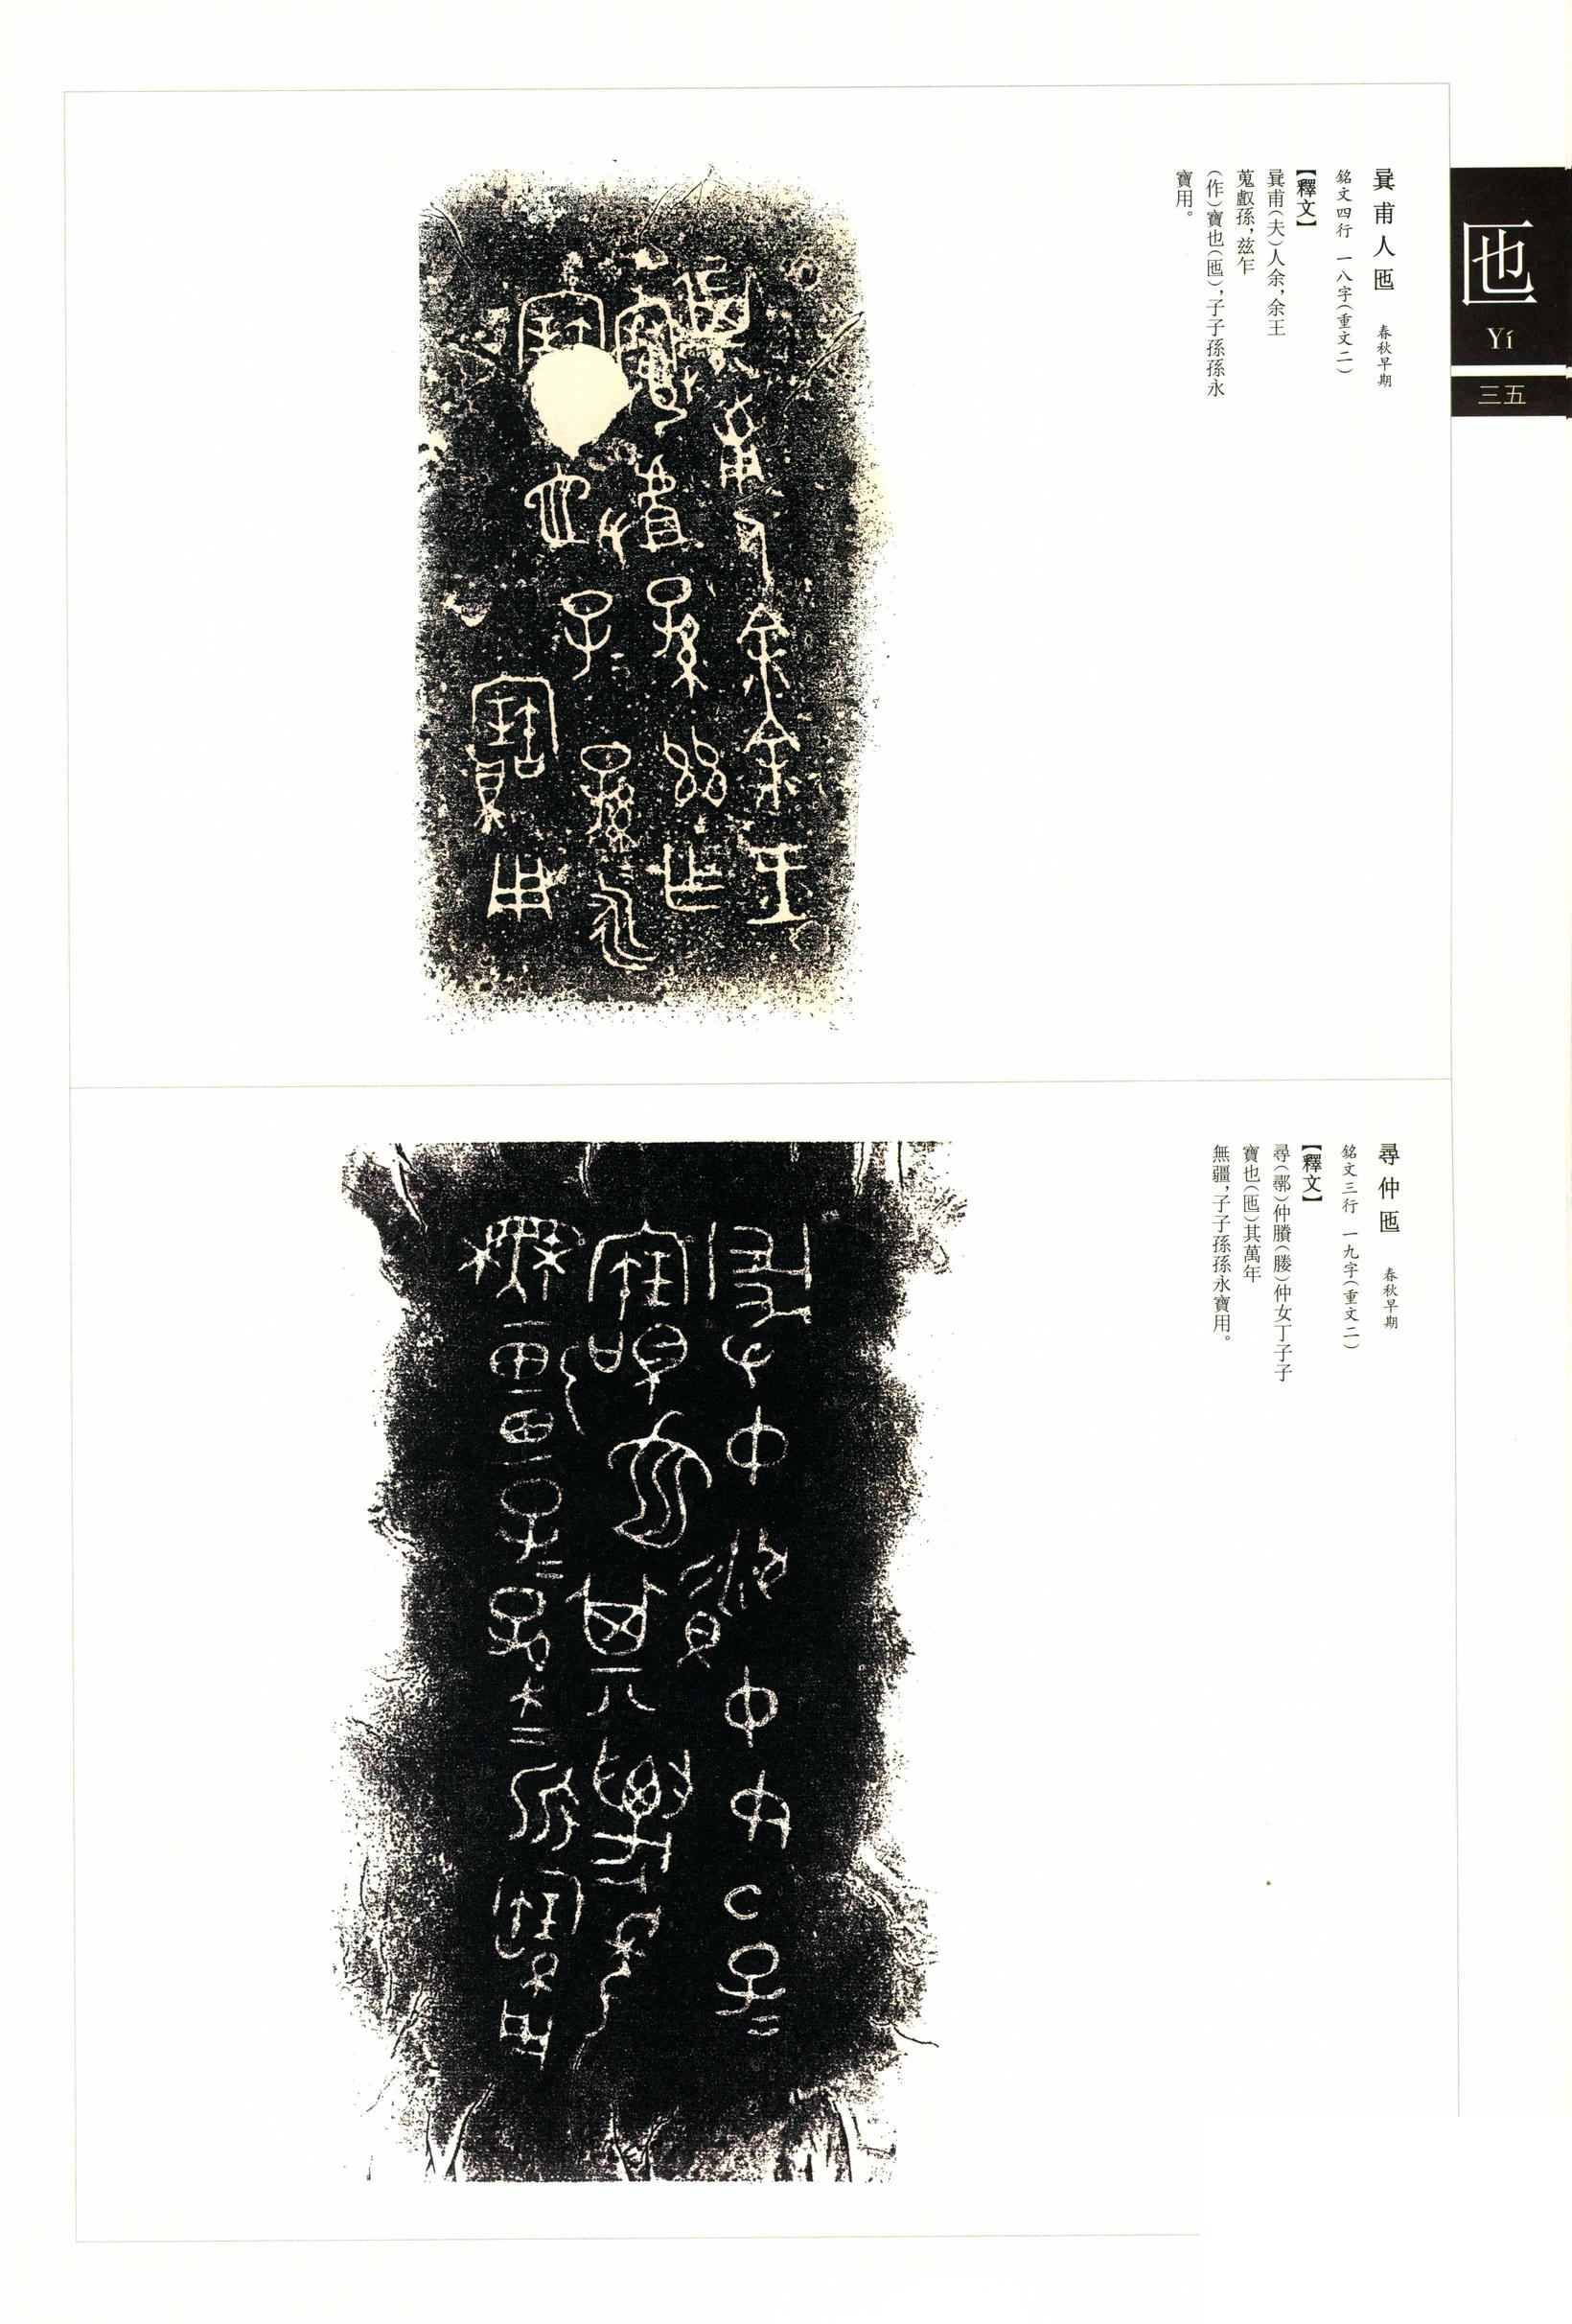 匜
Yí
三五
㠱甫人匜 春秋早期
銘文四行 一八字(重文二)
【釋文】
㠱甫(夫)人余,余王
寬叡孫,兹乍
(作)寶也(匜),子子孫孫永
寶用。
尋仲匜 春秋早期
銘文三行 一九字(重文二)
【釋文】
尋(鄩)仲賸(媵)仲女丁子子
寶也(匜)其萬年
無疆,子子孫孫永寶用。